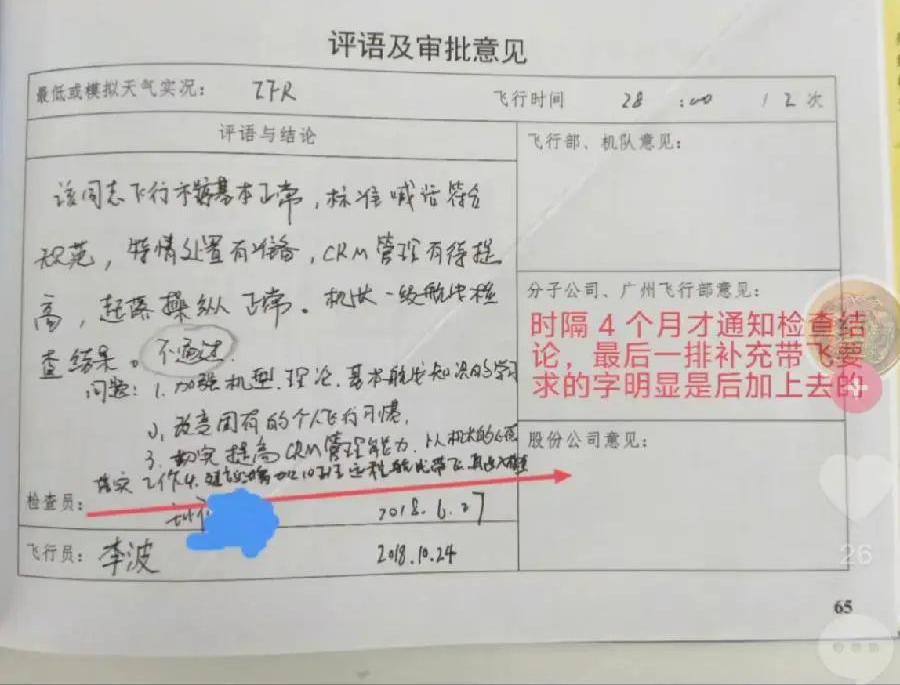 评语及审批意见
最低或模拟天气实况： IFR 飞行时间 28 :00 12次
评语与结论
该同志飞行术基本正常，标准喊话符合
规范，特情处置有准备，CRM管理有待提
高，起落操纵正常。机长一级航线检
查结果。不通过.
问题：1.加强机型.理论.基本航线知识的学习
2.改变固有的个人飞行习惯.
3.切实提高CRM管理能力.从机长的
落实工作4.
检查员：
2018.6.27
飞行员： 李波 2018.10.24
飞行部、机队意见：
分子公司、广州飞行部意见：
时隔4个月才通知检查结
论，最后一排补充带飞要
求的字明显是后加上去的
股份公司意见：
26
65